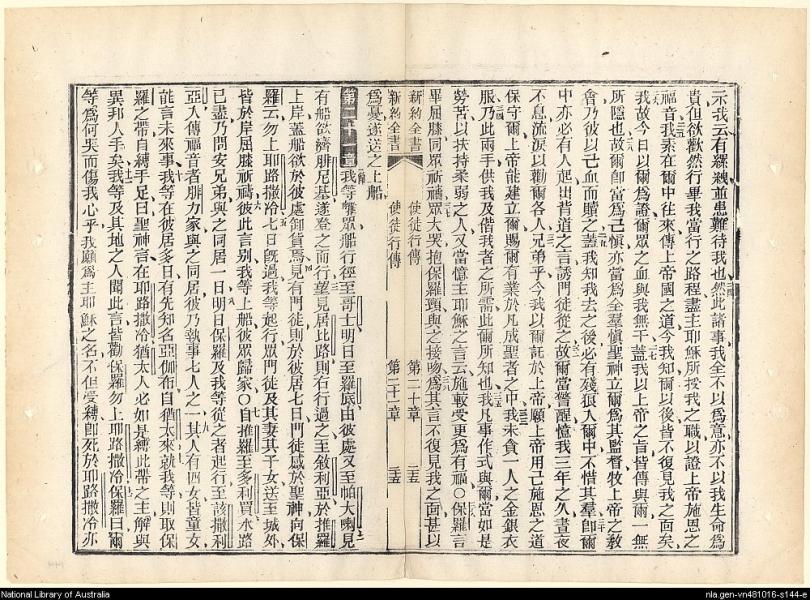 示我云有縲絏並患難待我也然此諸事我全不以爲意亦不以我生命爲
貴但欲歡然行畢我當行之路程盡主耶穌所授我之職以證上帝施恩之
福音我素在爾中往來傳上帝國之道今我知爾以後皆不復見我之面矣
我故今日以爾爲證爾眾之血與我無干蓋我以上帝之旨皆傳與爾一無
所隱也故爾卽當爲己愼亦當爲全羣愼聖神立爾爲其監督牧上帝之敎
會乃彼以己血而贖之蓋我知我去之後必有殘狼入爾中不惜其羣卽爾
中亦必有人起出背道之言誘門徒從之故爾當警醒憶我三年之久晝夜
不息流淚以勸爾各人兄弟乎今我以爾託於上帝願上帝用己施恩之道
保守爾上帝能建立爾賜爾有業於凡成聖者之中我未貪一人之金銀衣
服乃此兩手供我及偕我者之所需此爾所知也我凡事作式與爾當如是
勞苦以扶持柔弱之人又當憶主耶穌之言云施較受更爲有福○保羅言
畢屈膝同眾祈禱眾大哭抱保羅頸與之接吻爲其言不復見我之面甚以
新約全書 使徒行傳 第二十章 三五
新約全書 使徒行傳 第二十一章 三五
爲憂遂送之上船
第二十一章 我等離眾船行徑至哥士明日至羅底由彼處又至帕大喇見
有船欲濟腓尼基遂登之而行望見居比路則右行過之至敘利亞於推羅
上岸蓋船欲於彼處卸貨焉見有門徒則於彼居七日門徒感於聖神向保
羅云勿上耶路撒冷七日旣過我等起行眾門徒及其妻其子女送至城外
皆於岸屈膝祈禱彼此言别我等上船彼眾歸家○自推羅至多利買水路
已盡乃問安兄弟與之同居一日明日保羅及我等從之者起行至該撒利
亞入傳福音者腓力家與之同居彼乃執事七人之一其人有四女皆童女
能言未來事我等在彼居多日有先知名亞伽布自猶太來就我等則取保
羅之帶自縛手足曰聖神言在耶路撒冷猶太人必如是縛此帶之主解與
異邦人手矣我等及其地之人聞此言皆勸保羅勿上耶路撒冷保羅曰爾
等爲何哭而傷我心乎我願爲主耶穌之名不但受縛卽死於耶路撒冷亦
National Library of Australia
nla.gen-vn481016-s144-e